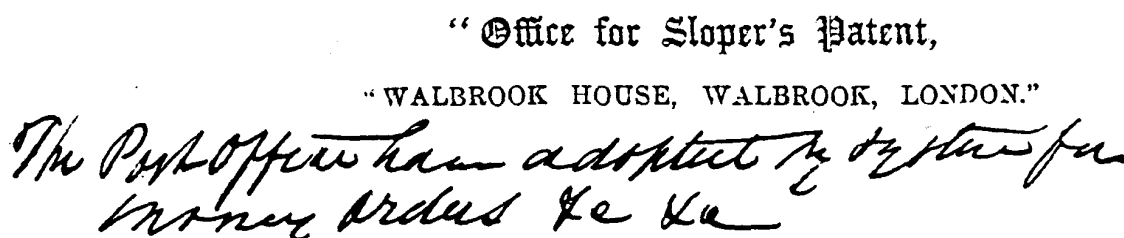 “Office for Sloper's Patent,
“WALBROOK HOUSE, WALBROOK, LONDON.”
The Post Office have adopted my system for
money orders &c &c